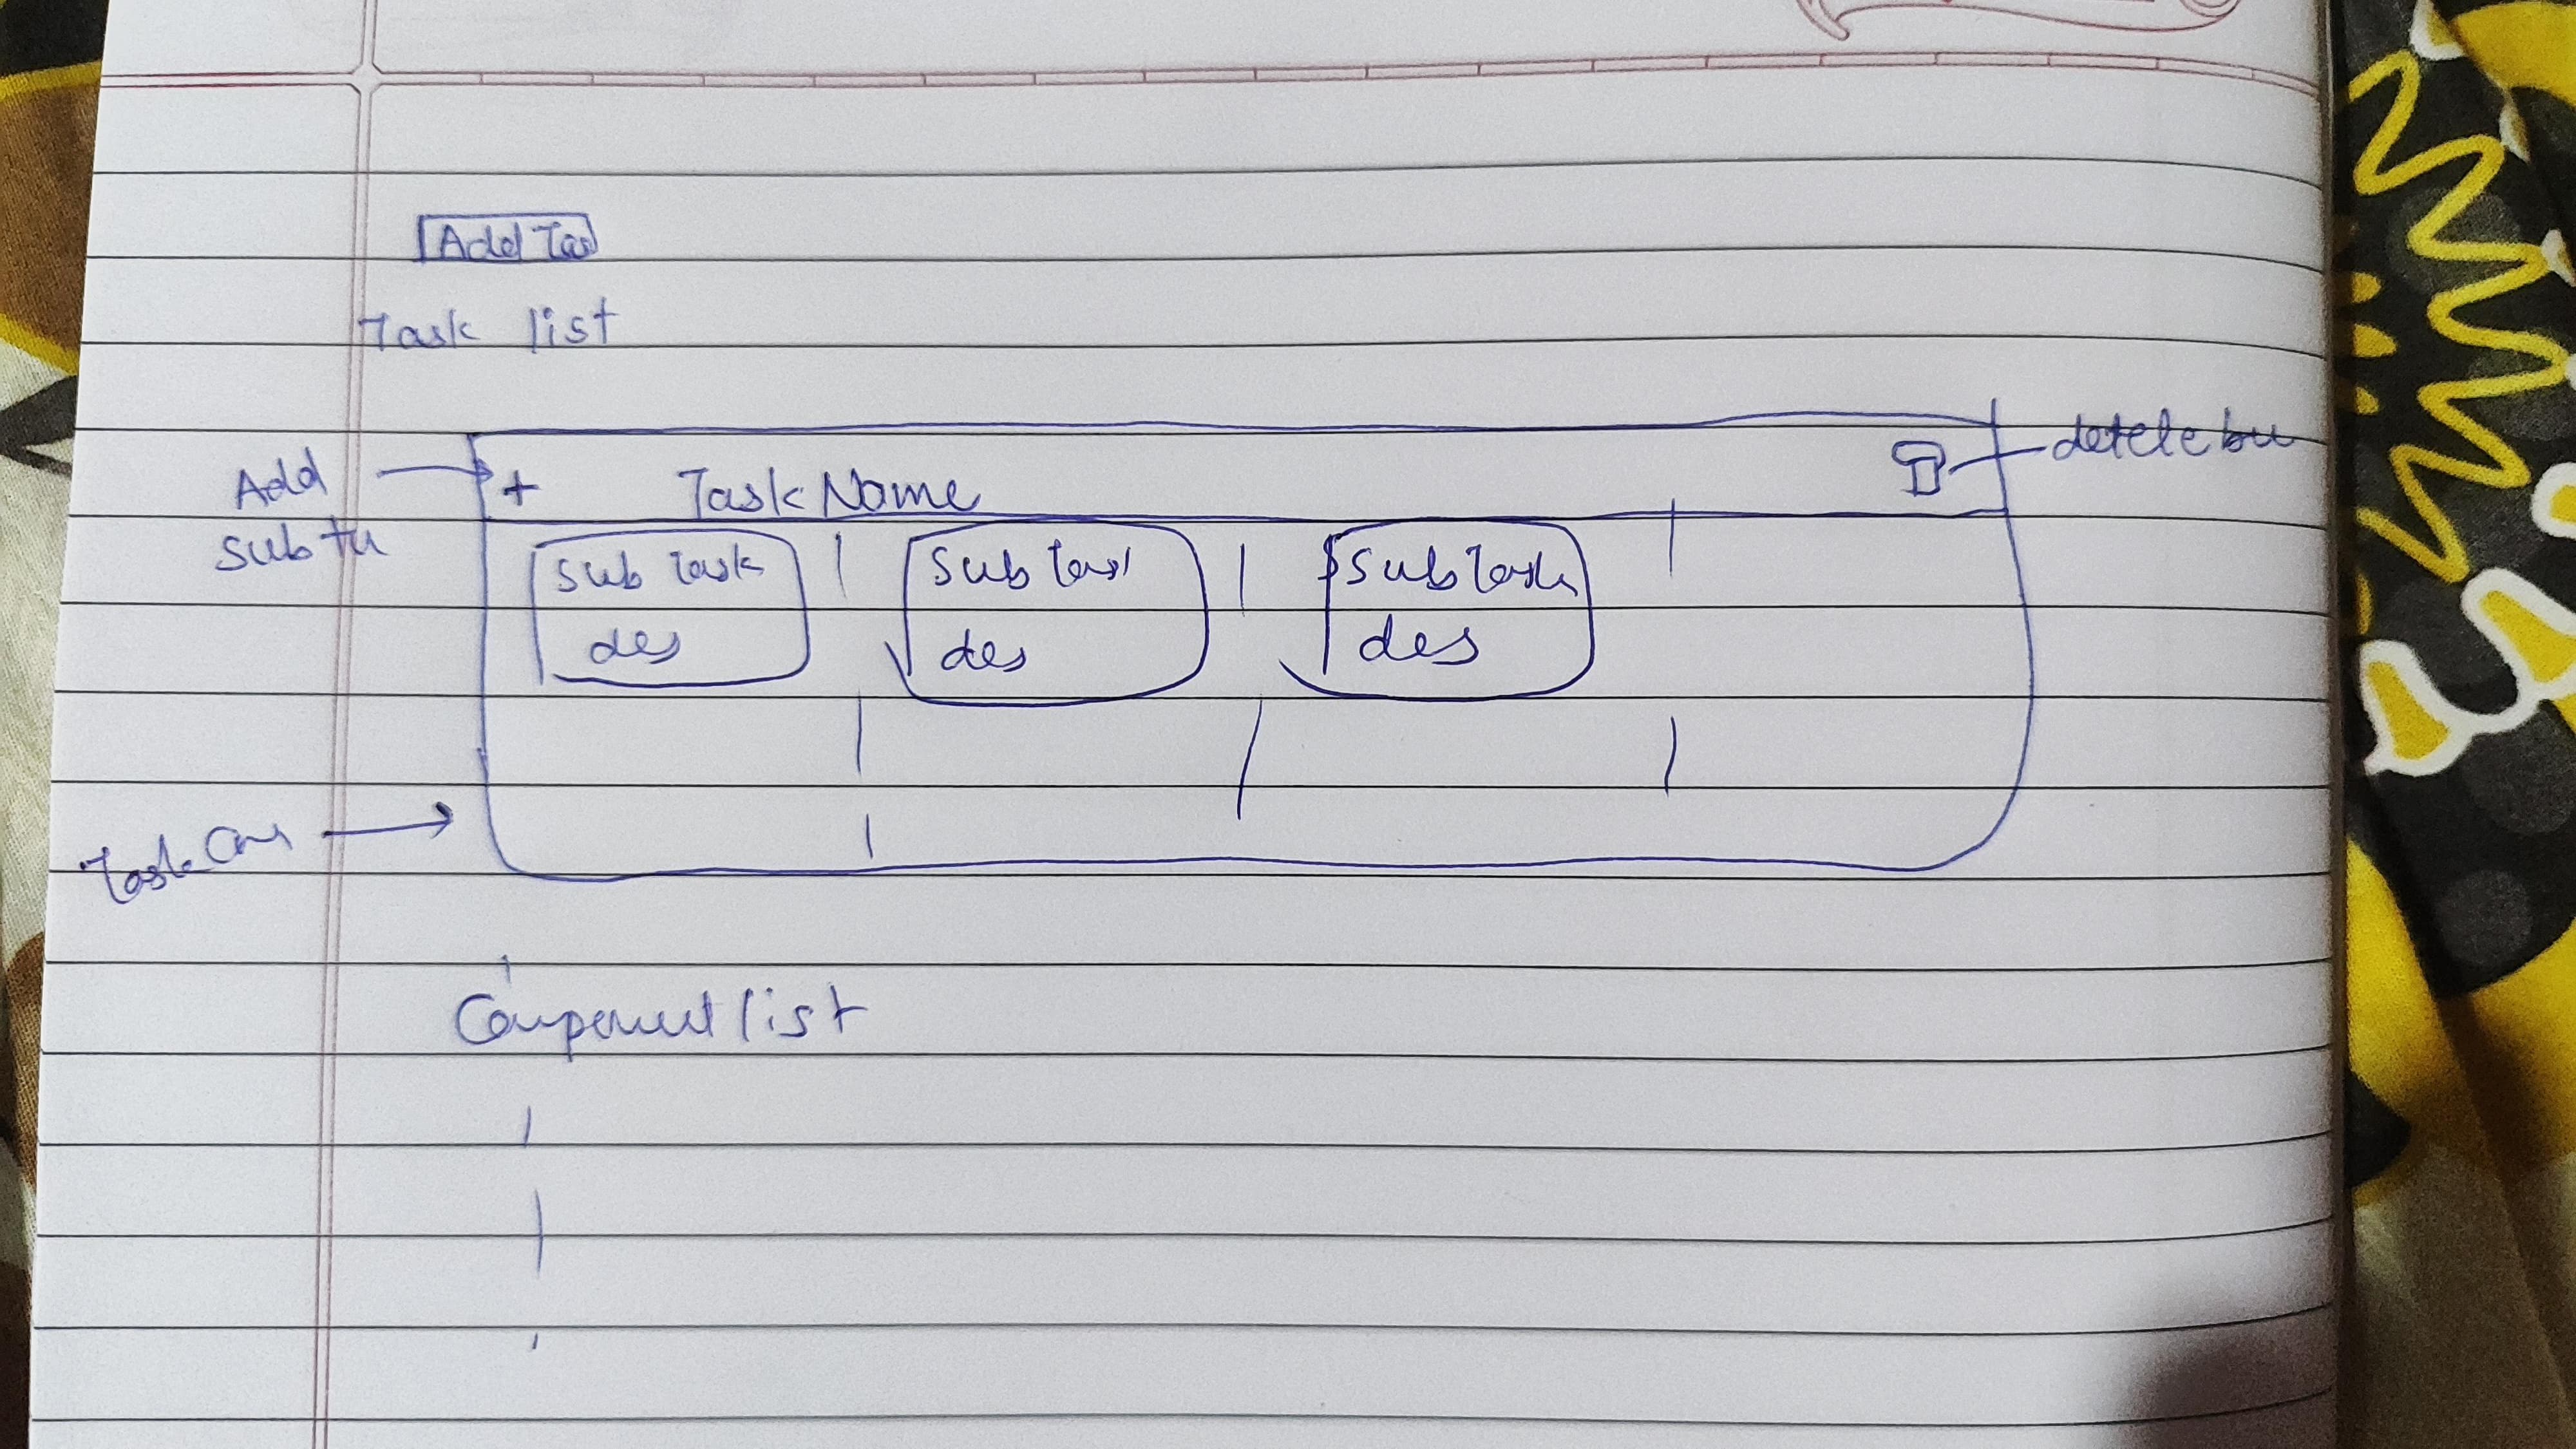 Add Tas
Task list
Add
subta
+ Task Name
detele bu
Sub Task
des
Sub Tas
des
Sub Task
des
Task
Component list